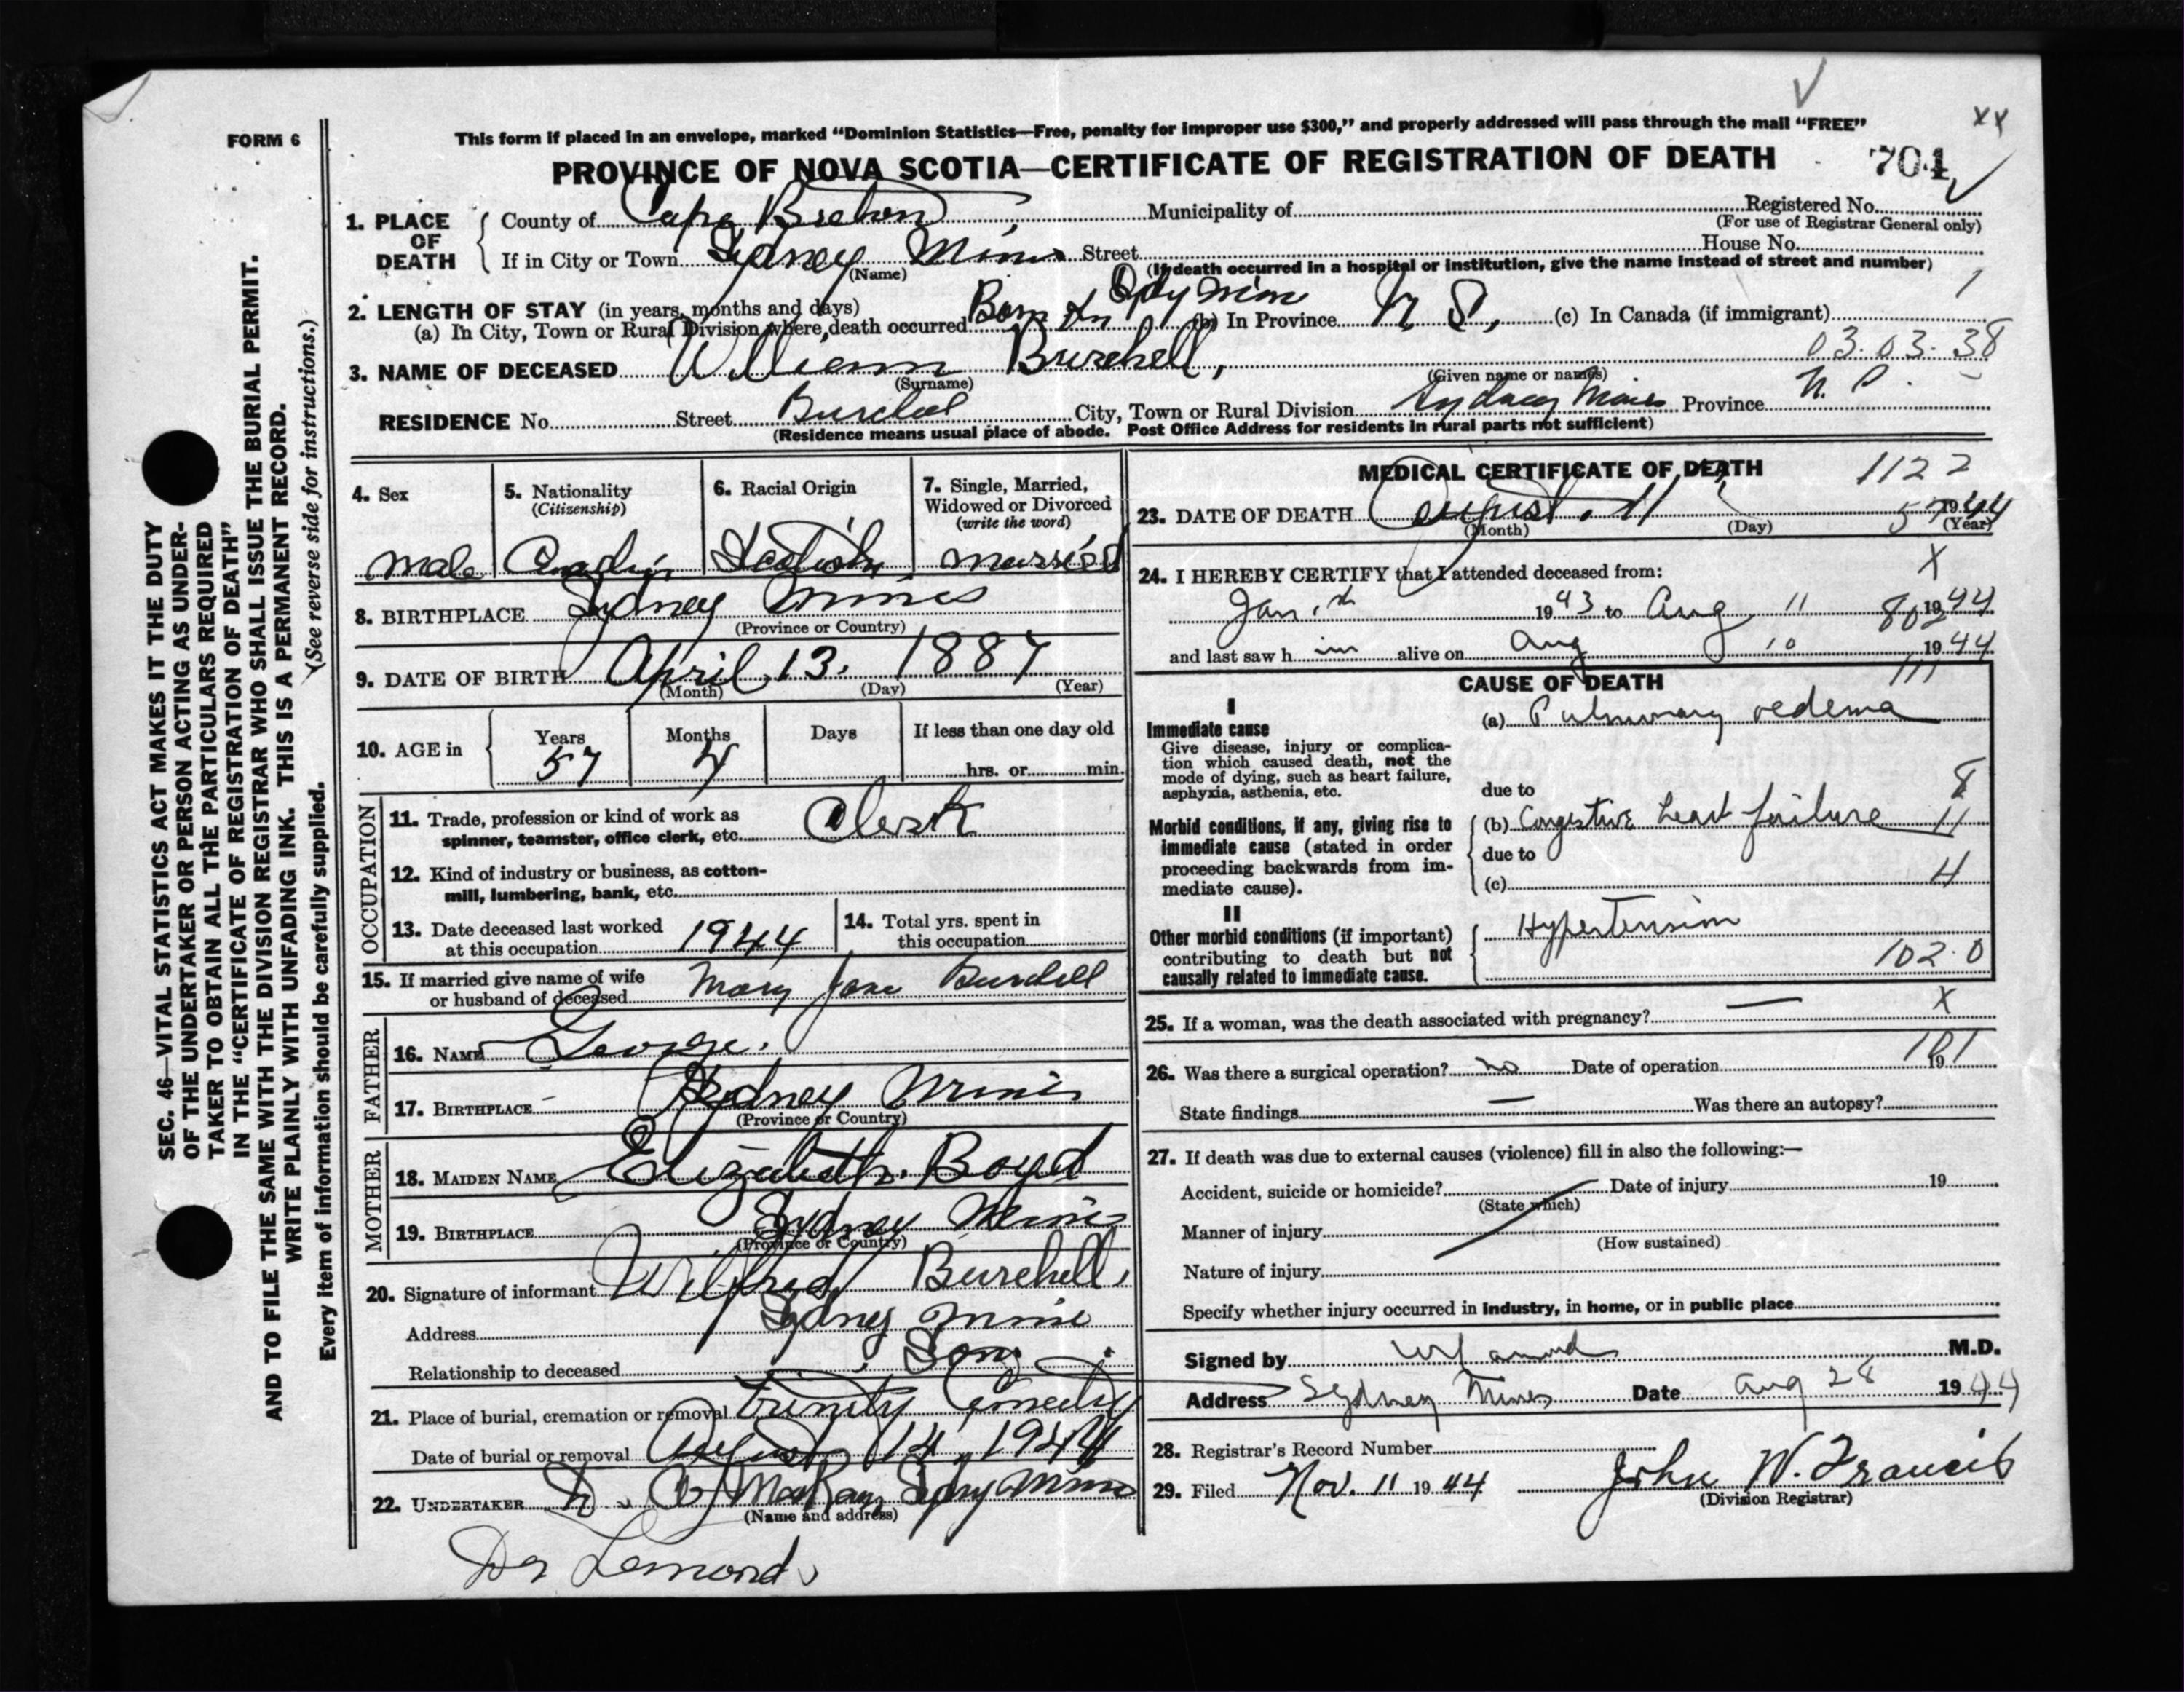 FORM 6
This form if placed in an envelope, marked "Dominion Statistics—Free, penalty for improper use $300," and properly addressed will pass through the mail "FREE"
xx
PROVINCE OF NOVA SCOTIA—CERTIFICATE OF REGISTRATION OF DEATH 704
1. PLACE OF DEATH
County of Cape Breton Municipality of Registered No.
(For use of Registrar General only)
If in City or Town Sydney Mines Street House No.
(Name) (If death occurred in a hospital or institution, give the name instead of street and number)
2. LENGTH OF STAY (in years, months and days) 1
(a) In City, Town or Rural Division where death occurred Born In Sdy Mine (b) In Province N. S. (c) In Canada (if immigrant)
03.03.38
3. NAME OF DECEASED William Burchell,
(Surname) (Given name or names)
RESIDENCE No. Street Burchell City, Town or Rural Division Sydney Mines Province N. S.
(Residence means usual place of abode. Post Office Address for residents in rural parts not sufficient)
4. Sex
Male
5. Nationality
(Citizenship)
6. Racial Origin
Scotish
7. Single, Married,
Widowed or Divorced
(write the word)
Married
8. BIRTHPLACE Sydney Mines
(Province or Country)
9. DATE OF BIRTH April 13, 1887
(Month) (Day) (Year)
10. AGE in
Years
57
Months
4
Days
If less than one day old
hrs. or min.
OCCUPATION
11. Trade, profession or kind of work as
spinner, teamster, office clerk, etc. Clerk
12. Kind of industry or business, as cotton-
mill, lumbering, bank, etc.
13. Date deceased last worked
at this occupation 1944
14. Total yrs. spent in
this occupation
15. If married give name of wife
or husband of deceased Mary Jane Burchell
FATHER
16. NAME George.
17. BIRTHPLACE Sydney Mines
(Province or Country)
MOTHER
18. MAIDEN NAME Elizabeth. Boyd
19. BIRTHPLACE Sydney Mines
(Province or Country)
20. Signature of informant Wilfred Burchell,
Address Sydney Mine
Relationship to deceased Son
21. Place of burial, cremation or removal Trinity Cemetry
Date of burial or removal August 14, 1944
22. UNDERTAKER MacKay Sydny Mines
(Name and address)
Dr Lemond
MEDICAL CERTIFICATE OF DEATH 1122
23. DATE OF DEATH August, 11 57 1944
(Month) (Day) (Year)
X
24. I HEREBY CERTIFY that I attended deceased from:
Jan. 1943 to Aug 11 1944
and last saw h im alive on Aug 10 1944
CAUSE OF DEATH 111
I
Immediate cause
Give disease, injury or complica-
tion which caused death, not the
mode of dying, such as heart failure,
asphyxia, asthenia, etc.
(a) Pulmonary oedema
due to 8
Morbid conditions, if any, giving rise to
immediate cause (stated in order
proceeding backwards from im-
mediate cause).
(b) Congestive heart failure 11
due to
(c) 4
II
Other morbid conditions (if important)
contributing to death but not
causally related to immediate cause.
Hypertension
102.0
X
25. If a woman, was the death associated with pregnancy? —
101
26. Was there a surgical operation? no Date of operation 19
State findings — Was there an autopsy?
27. If death was due to external causes (violence) fill in also the following:—
Accident, suicide or homicide? Date of injury 19
(State which)
Manner of injury
(How sustained)
Nature of injury
Specify whether injury occurred in industry, in home, or in public place
Signed by M.D.
Address Sydney Mines Date Aug 28 1944
28. Registrar's Record Number
29. Filed Nov. 11 1944 John W. Francis
(Division Registrar)
SEC. 46—VITAL STATISTICS ACT MAKES IT THE DUTY
OF THE UNDERTAKER OR PERSON ACTING AS UNDER-
TAKER TO OBTAIN ALL THE PARTICULARS REQUIRED
IN THE "CERTIFICATE OF REGISTRATION OF DEATH"
AND TO FILE THE SAME WITH THE DIVISION REGISTRAR WHO SHALL ISSUE THE BURIAL PERMIT.
WRITE PLAINLY WITH UNFADING INK. THIS IS A PERMANENT RECORD.
Every item of information should be carefully supplied. (See reverse side for instructions.)